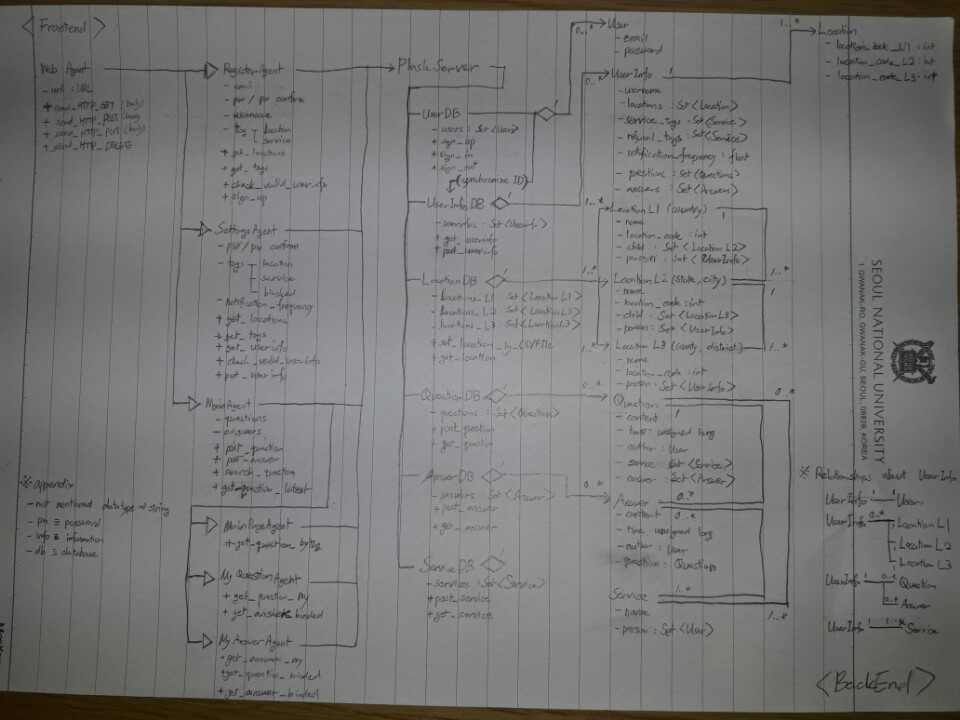 <Frontend>
Web Agent
- url : URL
+ send_HTTP_GET (body)
+ send_HTTP_POST (body)
+ send_HTTP_PUT (body)
+ send_HTTP_DELETE
RegisterAgent
- email
- pw / pw confirm
- username
- tag - location
- service
+ get_locations
+ get_tags
+ check_valid_userinfo
+ sign_up
SettingsAgent
- pw / pw confirm
- tags - location
- service
- blinded
- notification_frequency
+ get_locations
+ get_tags
+ get_userinfo
+ check_valid_userinfo
+ put_userinfo
MainAgent
- questions
- answers
+ post_question
+ post_answer
+ search_question
+ get_question_latest
MainPageAgent
+ get_question_bytag
My QuestionAgent
+ get_question_my
+ get_answer_binded
My AnswerAgent
+ get_answer_my
+ get_question_binded
+ get_answer_binded
※ appendix
- not mentioned datatype ⇒ string
- pw ≡ password
- info ≡ information
- db ≡ database
Flask Server
UserDB
- users : Set <User>
+ sign_up
+ sign_in
+ sign_out
(synchronize ID)
UserInfo DB
- userinfos : Set <Userinfo>
+ get_userinfo
+ put_userinfo
Location DB
- locations_L1 : Set <Location L1>
- locations_L2 : Set <Location L2>
- locations_L3 : Set <Location L3>
+ set_location_by_CSVFile
+ get_location
Question DB
- questions : Set <Question>
+ post_question
+ get_question
AnswerDB
- answers : Set <Answer>
+ post_answer
+ get_answer
Service DB
- services : Set <Service>
+ post_service
+ get_service
User
- email
- password
UserInfo
- username
- locations : Set <Location>
- service_tags : Set <Service>
- refusal_tags : Set <Service>
- notification_frequency : float
- questions : Set <Questions>
- answers : Set <Answers>
Location L1 (country)
- name
- location_code : int
- child : Set < Location L2>
- person : Set < UserInfo>
Location L2 (state, city)
- name
- location_code : int
- child : Set <Location L3>
- person : Set <UserInfo>
Location L3 (county, district)
- name
- location_code : int
- person : Set <UserInfo>
Question
- content
- time : unsigned long
- author : User
- service : Set <Service>
- answer : Set <Answer>
Answer
- content
- time : unsigned long
- author : User
- question : Question
Service
- name
- person : Set <User>
Location
- location_code_L1 : int
- location_code_L2 : int
- location_code_L3 : int
SEOUL NATIONAL UNIVERSITY
1 GWANAK-RO, GWANAK-GU, SEOUL, 08826, KOREA
※ Relationships about UserInfo
UserInfo 1 1 User
UserInfo 0..* Location L1
Location L2
Location L3
UserInfo 1 0..* Question
0..* Answer
UserInfo 1 1..* Service
<BackEnd>